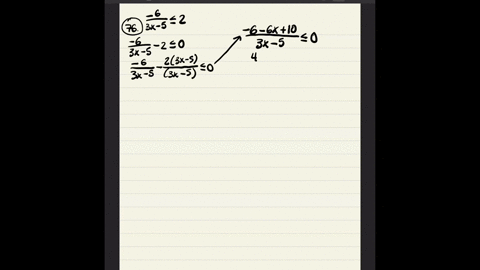 76. -6/(3x-5) ≤ 2
-6/(3x-5) - 2 ≤ 0
-6/(3x-5) - 2(3x-5)/(3x-5) ≤ 0
(-6-6x+10)/(3x-5) ≤ 0
4